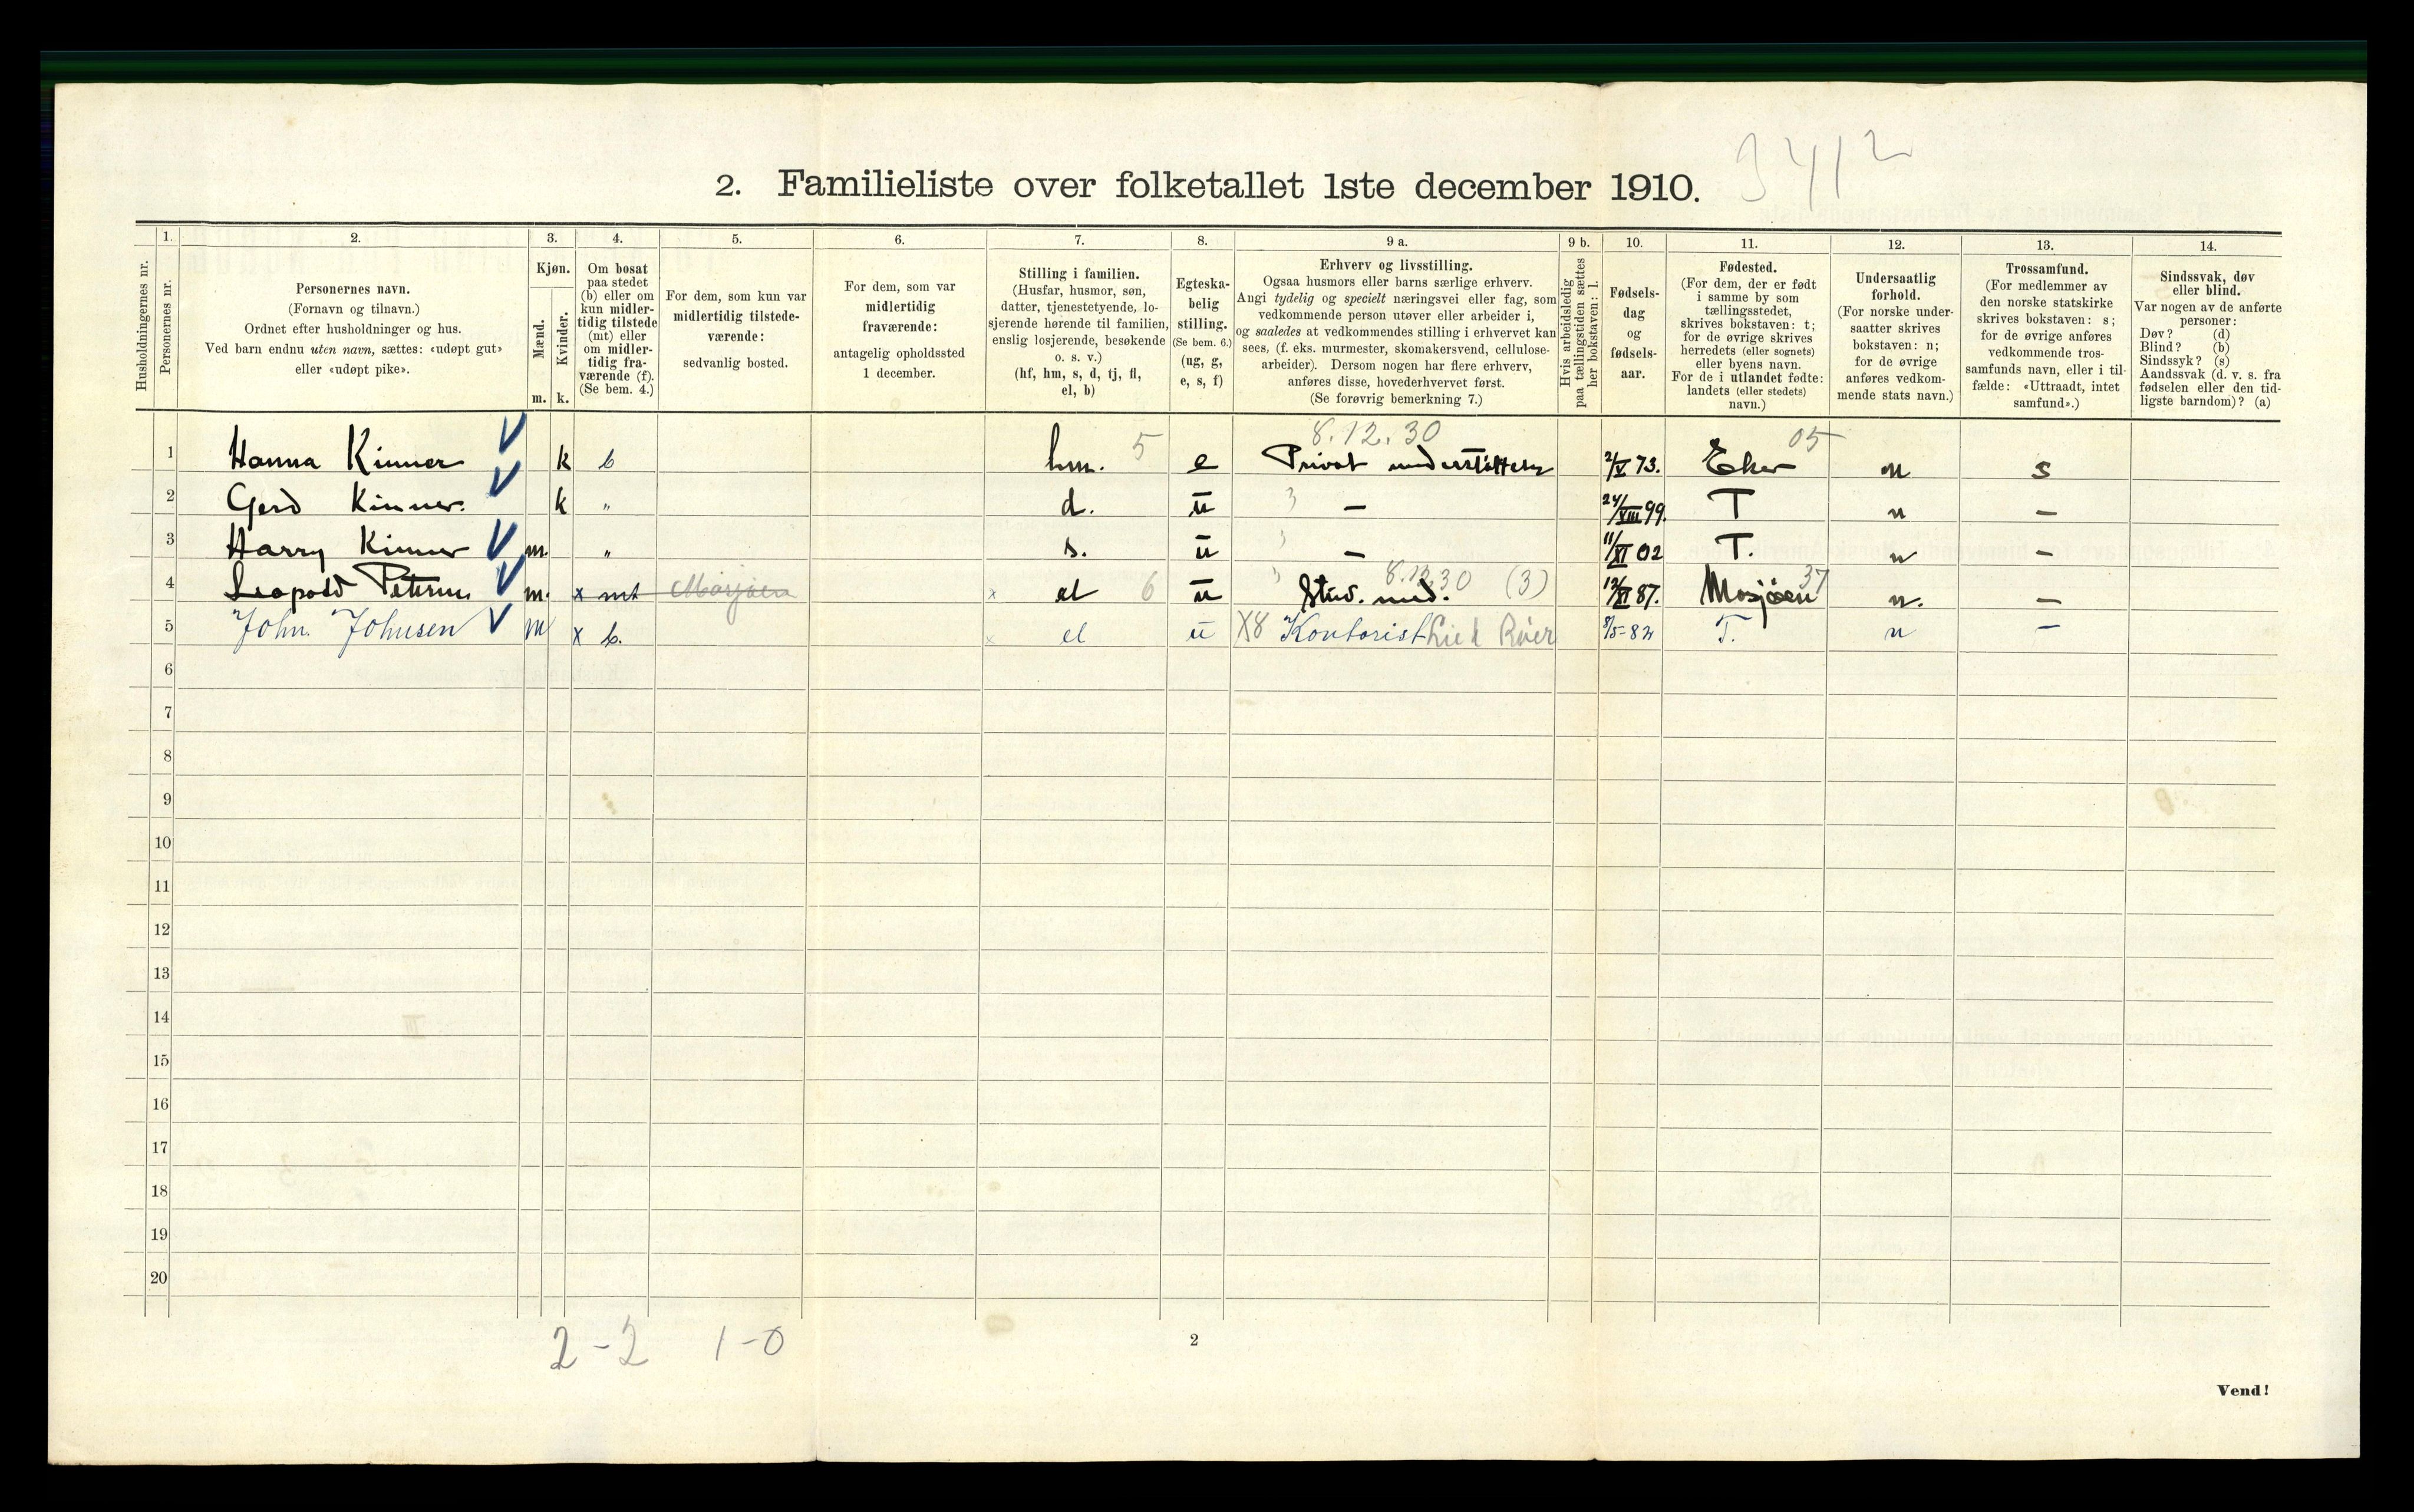 3412
2. Familieliste over folketallet 1ste december 1910.
Husholdningernes nr.
1.
Personernes nr.
2.
Personernes navn.
(Fornavn og tilnavn.)
Ordnet efter husholdninger og hus.
Ved barn endnu uten navn, sættes: «udøpt gut»
eller «udøpt pike».
3.
Kjøn.
Mænd.
Kvinder.
m.
k.
4.
Om bosat
paa stedet
(b) eller om
kun midler-
tidig tilstede
(mt) eller
om midler-
tidig fra-
værende (f).
(Se bem. 4.)
5.
For dem, som kun var
midlertidig tilstede-
værende:
sedvanlig bosted.
6.
For dem, som var
midlertidig
fraværende:
antagelig opholdssted
1 december.
7.
Stilling i familien.
(Husfar, husmor, søn,
datter, tjenestetyende, lo-
sjerende hørende til familien,
enslig losjerende, besøkende
o. s. v.)
(hf, hm, s, d, tj, fl,
el, b)
8.
Egteska-
belig
stilling.
(Se bem. 6.)
(ug, g,
e, s, f)
9 a.
Erhverv og livsstilling.
Ogsaa husmors eller barns særlige erhverv.
Angi tydelig og specielt næringsvei eller fag, som
vedkommende person utøver eller arbeider i,
og saaledes at vedkommendes stilling i erhvervet kan
sees, (f. eks. murmester, skomakersvend, cellulose-
arbeider). Dersom nogen har flere erhverv,
anføres disse, hovederhvervet først.
(Se forøvrig bemerkning 7.)
9 b.
Hvis arbeidsledig
paa tællingstiden sættes
her bokstaven: l.
10.
Fødsels-
dag
og
fødsels-
aar.
11.
Fødested.
(For dem, der er født
i samme by som
tællingsstedet,
skrives bokstaven: t;
for de øvrige skrives
herredets (eller sognets)
eller byens navn.
For de i utlandet fødte:
landets (eller stedets)
navn.)
12.
Undersaatlig
forhold.
(For norske under-
saatter skrives
bokstaven: n;
for de øvrige
anføres vedkom-
mende stats navn.)
13.
Trossamfund.
(For medlemmer av
den norske statskirke
skrives bokstaven: s;
for de øvrige anføres
vedkommende tros-
samfunds navn, eller i til-
fælde: «Uttraadt, intet
samfund».)
14.
Sindssvak, døv
eller blind.
Var nogen av de anførte
personer:
Døv? (d)
Blind? (b)
Sindssyk? (s)
Aandssvak (d. v. s. fra
fødselen eller den tid-
ligste barndom)? (a)
8.12.30 05
1 Hanna Kinner V k b hm. 5 e Privat understøttelse 2/V 73. Eker n s
2 Gerd Kinner. V k " d. u 3 — 24/VIII 99. T n —
3 Harry Kinner V m. " s. u 3 — 11/XI 02 T. n —
4 Leopold Petersen V m. x mt Mosjøen x el 6 u 3 Stud. med. 8.12.30 (3) 12/XI 87. Mosjøen 37 n. —
5 John Johnsen V m x b. x el u X8 Kontorist 8/5-82 T. n —
6
7
8
9
10
11
12
13
14
15
16
17
18
19
20
2-2 1-0
2
Vend!